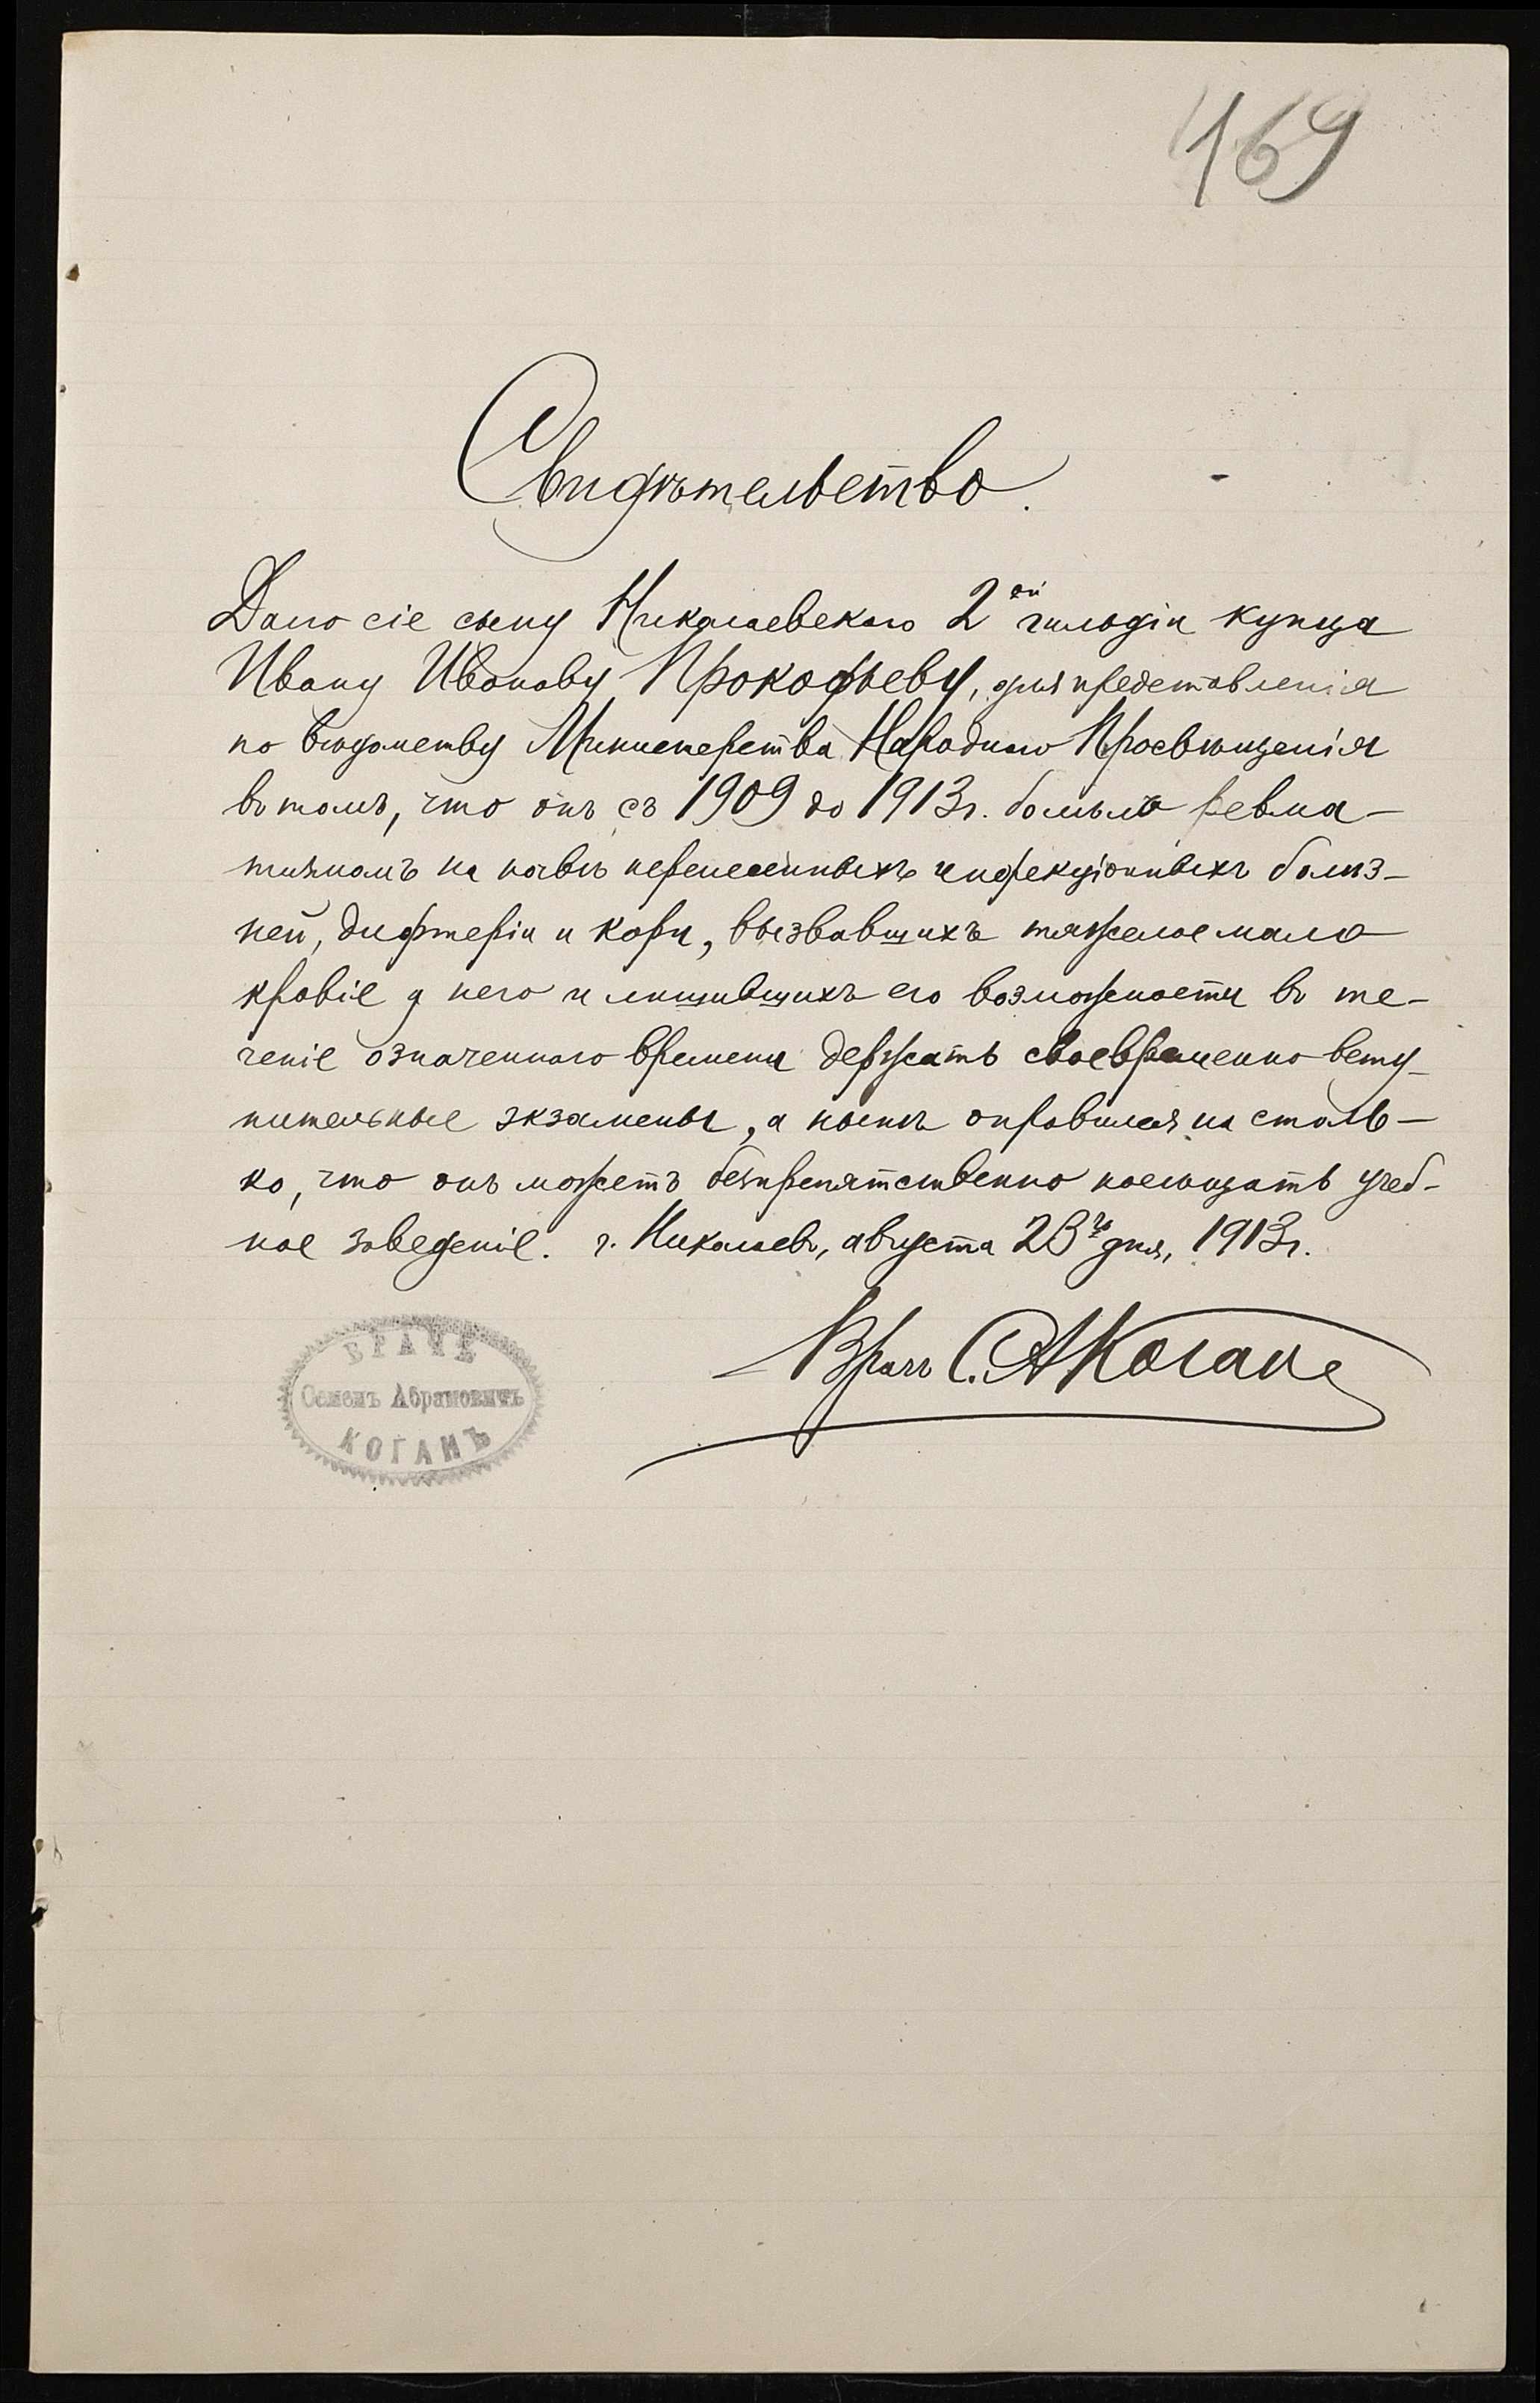 169
Свидѣтельство.
Дано сіе сыну Николаевскаго 2ой гильдіи купца
Ивану Иванову Прокофьеву, для представленія
по вѣдомству Министерства Народнаго Просвѣщенія
въ томъ, что онъ съ 1909 до 1913 г. болѣлъ ревма-
тизмомъ на почвѣ перенесенныхъ инфекціонныхъ болѣз-
ней, дифтеріи и кори, вызвавшихъ тяжелое мало
кровіе у него и лишившихъ его возможности въ те-
ченіе означеннаго времени держать своевременно всту-
пительные экзамены, а нынѣ оправился на столь-
ко, что онъ можетъ безпрепятственно посѣщать учеб-
ное заведеніе. г. Николаевъ, августа 23го дня, 1913 г.
Врачъ С. А Коганъ
ВРАЧЪ
Семенъ Абрамовичъ
КОГАНЪ